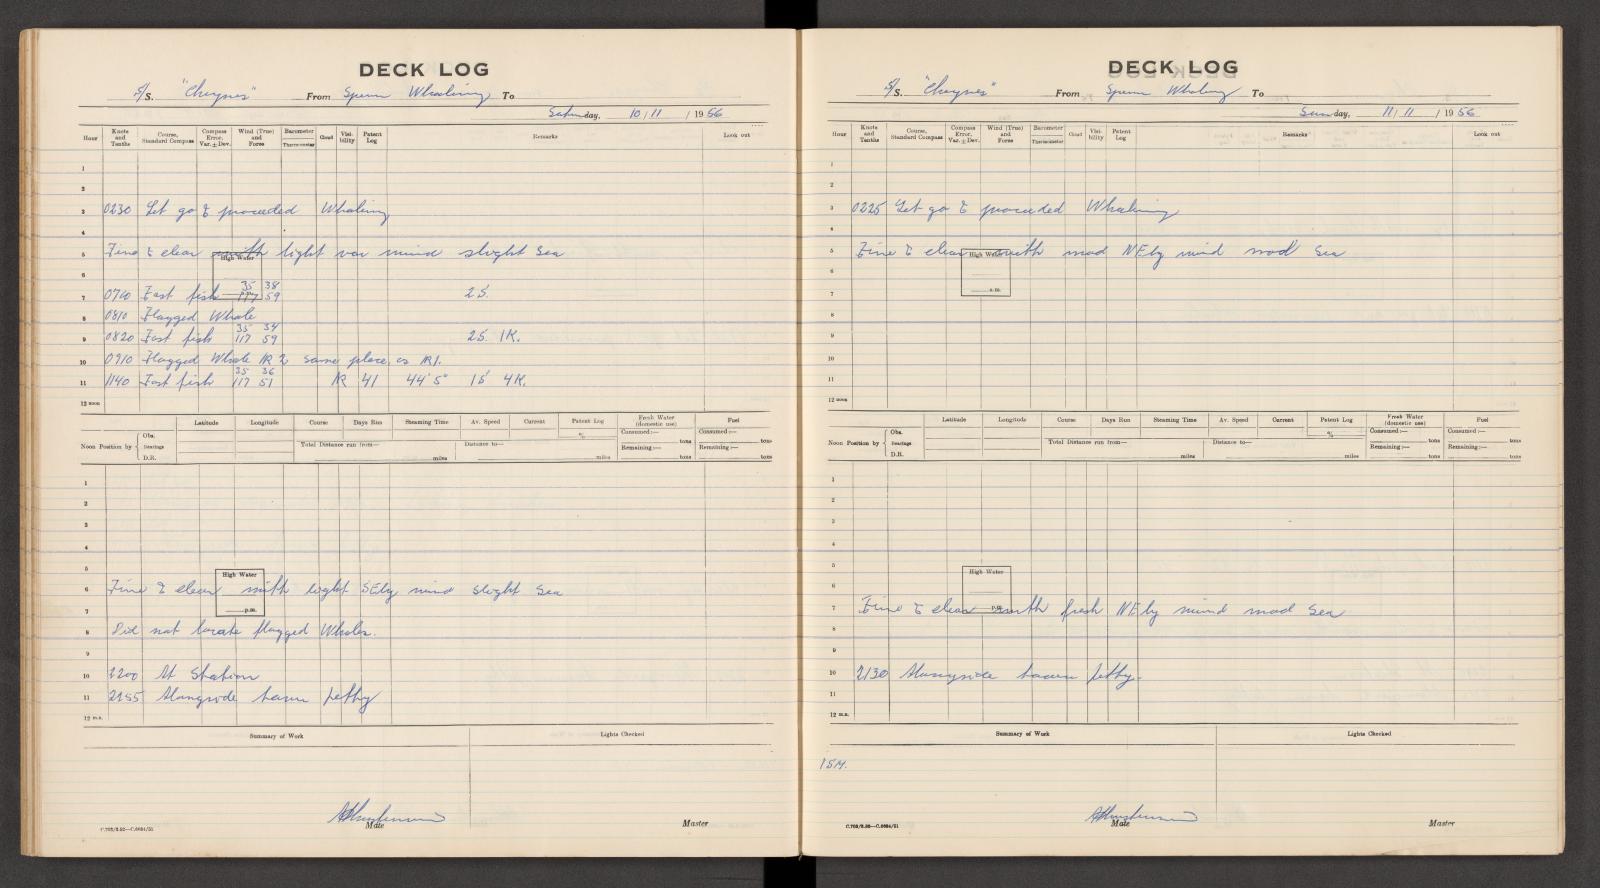 DECK LOG
S/S. "Cheynes" From Sperm Whaling To
Saturday, 10/11/1956
Hour Knots and Tenths Course, Standard Compass Compass Error. Var. ± Dev. Wind (True) and Force Barometer Thermometer Cloud Visibility Patent Log Remarks Look out
1
2
3 0230 Let go & proceeded Whaling
4
5 Fine & clear with light var wind slight sea
High Water
6
35 38
7 0710 Fast fish 117 59 25'
8 0810 Flagged Whale
35 34
9 0820 Fast fish 117 59 25' 1K.
10 0910 Flagged Whale IR 2 same place as IR1.
35 36
11 1140 Fast fish 117 51 IR 41 44'5" 15' 4K.
12 noon
Latitude Longitude Course Days Run Steaming Time Av. Speed Current Patent Log Fresh Water (domestic use) Fuel
Noon Position by Obs. Bearings D.R.
% Consumed:— tons Consumed:— tons
Total Distance run from— miles Distance to— miles Remaining:— tons Remaining:— tons
1
2
3
4
5
High Water
6 Fine & clear with light SEly wind slight sea
7 p.m.
8 Did not locate flagged Whales.
9
10 2200 At Station
11 2255 Alongside town jetty
12 m.n.
Summary of Work Lights Checked
Mate Master
C.702/2.52—C.6694/51
DECK LOG
S/S. "Cheynes" From Sperm Whaling To
Sunday, 11/11/1956
Hour Knots and Tenths Course, Standard Compass Compass Error. Var. ± Dev. Wind (True) and Force Barometer Thermometer Cloud Visibility Patent Log Remarks Look out
1
2
3 0225 Let go & proceeded Whaling
4
5 Fine & clear with mod NEly wind mod sea
High Water
6
7 a.m.
8
9
10
11
12 noon
Latitude Longitude Course Days Run Steaming Time Av. Speed Current Patent Log Fresh Water (domestic use) Fuel
Noon Position by Obs. Bearings D.R.
% Consumed:— tons Consumed:— tons
Total Distance run from— miles Distance to— miles Remaining:— tons Remaining:— tons
1
2
3
4
5
High Water
6
7 Fine & clear with fresh NEly wind mod sea
p.m.
8
9
10 2130 Alongside town jetty.
11
12 m.n.
Summary of Work Lights Checked
15M.
Mate Master
C.702/2.52—C.6694/51